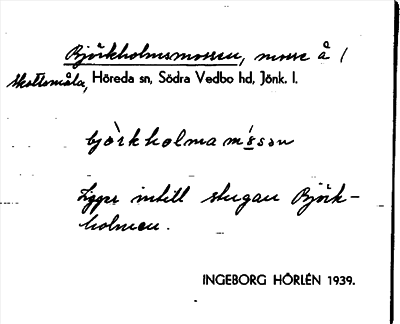 Björkholmsmossen, mosse å /
Skottemåla, Höreda sn, Södra Vedbo hd, Jönk. l.
bjò̀rkholmamósən
Ligger intill stugan Björk-
holmen.
INGEBORG HÖRLÉN 1939.